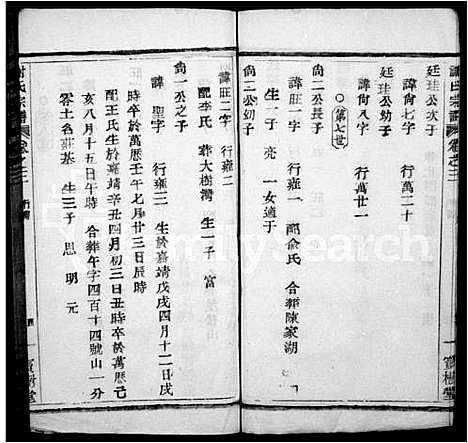 謝氏宗譜 卷之三
寶樹堂
廷珪公次子
諱尙七字 行萬二十
廷珪公幼子
諱尙八字 行萬廿一
○第七世
尙二公長子
諱旺一字 行雍一 配俞氏 合葬陳家湖
生一子 亮 一女適于
尙二公幼子
諱旺二字 行雍二
配李氏 葬大樹灣 生一子 富
尙一公之子
諱聖字 行雍三 生於嘉靖戊戌四月十二日戌
時卒於萬歷壬午七月廿三日辰時
配王氏生於嘉靖辛丑四月初三日丑時卒於萬歷己
亥八月十五日午時 合葬午字四百十四號山一分
零土名莊基 生三子 思 明 元
謝氏宗譜
FamilySearch